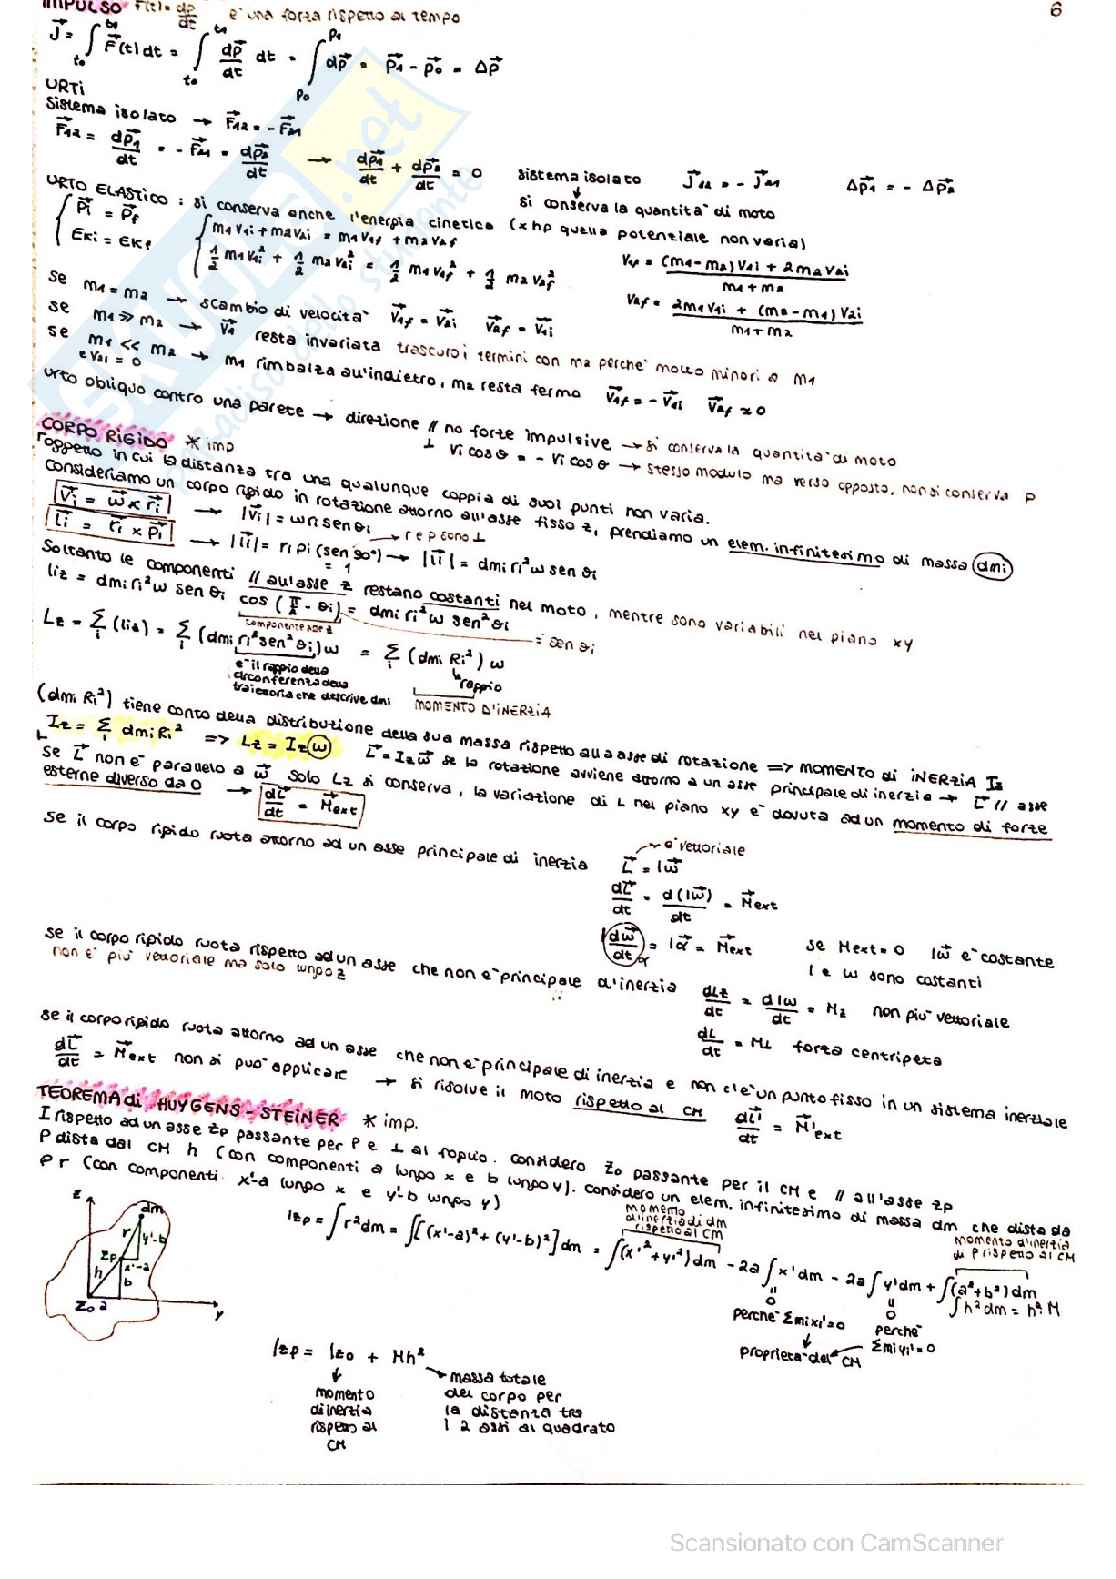 IMPULSO F(t) = dp/dt è una forza rispetto al tempo
6
J⃗ = ∫t₀^t₁ F⃗(t) dt = ∫t₀^t₁ dp⃗/dt dt = ∫p₀^p₁ dp⃗ = p⃗₁ - p⃗₀ = Δp⃗
URTI
Sistema isolato → F⃗₁₂ = -F⃗₂₁
F⃗₁₂ = dp⃗₁/dt = -F⃗₂₁ = dp⃗₂/dt → dp⃗₁/dt + dp⃗₂/dt = 0 sistema isolato J⃗₁₂ = -J⃗₂₁ Δp⃗₁ = -Δp⃗₂
↓
si conserva la quantità di moto
URTO ELASTICO: si conserva anche l'energia cinetica (x hp quella potenziale non varia)
{ P⃗i = P⃗f { m₁v₁i + m₂v₂i = m₁v₁f + m₂v₂f
Eki = Ekf ½ m₁v₁i² + ½ m₂v₂i² = ½ m₁v₁f² + ½ m₂v₂f²
v₁f = (m₁-m₂)v₁i + 2m₂v₂i / m₁+m₂
v₂f = 2m₁v₁i + (m₂-m₁)v₂i / m₁+m₂
se m₁ = m₂ → scambio di velocità v⃗₁f = v⃗₂i v⃗₂f = v⃗₁i
se m₁ ≫ m₂ → v⃗₁ resta invariata trascuro i termini con m₂ perchè molto minori a m₁
se m₁ << m₂ → m₁ rimbalza all'indietro, m₂ resta fermo v⃗₁f = -v⃗₁i v⃗₂f ≈ 0
e v₂i = 0
urto obliquo contro una parete → direzione // no forze impulsive → si conserva la quantità di moto
⊥ vi cosθ = - vi cosθ → stesso modulo ma verso opposto, non si conserva p
CORPO RIGIDO * imp
l'oggetto in cui la distanza tra una qualunque coppia di suoi punti non varia.
Consideriamo un corpo rigido in rotazione attorno all'asse fisso z, prendiamo un elem. infinitesimo di massa dmi
v⃗i = ω⃗ x r⃗i → |v⃗i| = ωri senθi
l⃗i = r⃗i x p⃗i → |l⃗i| = ri pi (sen 90°) → |l⃗i| = dmi ri² ω sen θi
→ r e p sono ⊥
= 1
Soltanto le componenti // all'asse z restano costanti nel moto, mentre sono variabili nel piano xy
liz = dmi ri² ω sen θi cos (π/2 - θi) = dmi ri² ω sen² θi
componente su z
= sen θi
Lz = Σi (liz) = Σi (dmi ri² sen² θi) ω = Σi (dmi Ri²) ω
è il raggio della
circonferenza della
traiettoria che descrive dmi
raggio
MOMENTO D'INERZIA
(dmi Ri²) tiene conto della distribuzione della sua massa rispetto alla asse di rotazione => MOMENTO di INERZIA Iz
Iz = Σi dmi Ri² => Lz = Iz ω L⃗ = Iz ω⃗ se la rotazione avviene attorno a un asse principale di inerzia → L⃗ // asse
se L⃗ non è parallelo a ω⃗ solo Lz si conserva, la variazione di L nel piano xy è dovuta ad un momento di forze
esterne diverso da 0 → dL⃗/dt = M⃗ext
se il corpo rigido ruota attorno ad un asse principale di inerzia L⃗ = Iω⃗
è vettoriale
dL⃗/dt = d(Iω⃗)/dt = M⃗ext
I dω⃗/dt = Iα⃗ = M⃗ext se Mext = 0 Iω⃗ è costante
α
I e ω sono costanti
se il corpo rigido ruota rispetto ad un asse che non è principale d'inerzia dLz/dt = dIω/dt = Mz non più vettoriale
non è più vettoriale ma solo lungo z
dL/dt = M⊥ forza centripeta
se il corpo rigido ruota attorno ad un asse che non è principale di inerzia e non c'è un punto fisso in un sistema inerziale
dL⃗/dt = M⃗ext non si può applicare → si risolve il moto rispetto al CM dL⃗'/dt = M⃗'ext
TEOREMA di HUYGENS-STEINER * imp.
I rispetto ad un asse zp passante per P e ⊥ al foglio. Considero z₀ passante per il CM e // all'asse zp
P dista dal CM h (con componenti a lungo x e b lungo y). Considero un elem. infinitesimo di massa dm che dista da
P r (con componenti x'-a lungo x e y'-b lungo y)
z
dm
r
y'-b
zp
x'-a
h
b
z₀
a
y
momento
d'inerzia di dm
rispetto al CM
momento d'inerzia
di P rispetto al CM
Izp = ∫r²dm = ∫[(x'-a)² + (y'-b)²]dm = ∫(x'² + y'²)dm - 2a∫x'dm - 2a∫y'dm + ∫(a²+b²)dm
∫h²dm = h²·M
= 0
perchè Σmixi'=0
= 0
perchè
Σmiyi'=0
proprietà del CM
Izp = Iz₀ + Mh²
momento
di inerzia
rispetto al
CM
massa totale
del corpo per
la distanza tra
i 2 assi al quadrato
Scansionato con CamScanner